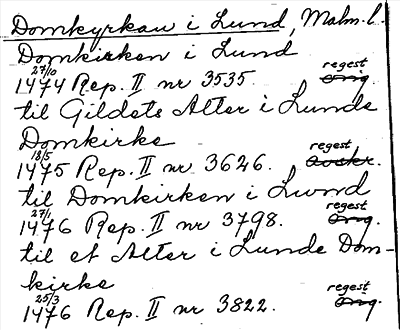 Domkyrkan i Lund, Malm. l.
Domkirken i Lund
27/10 regest
1474 Rep. II nr 3535. orig.
til Gildets Alter i Lunde
Domkirke
18/5 regest
1475 Rep. II nr 3626. Avskr.
til Domkirken i Lund
27/1 regest
1476 Rep. II nr 3798. orig.
til et Alter i Lunde Dom-
kirke
25/3 regest
1476 Rep. II nr 3822. orig.